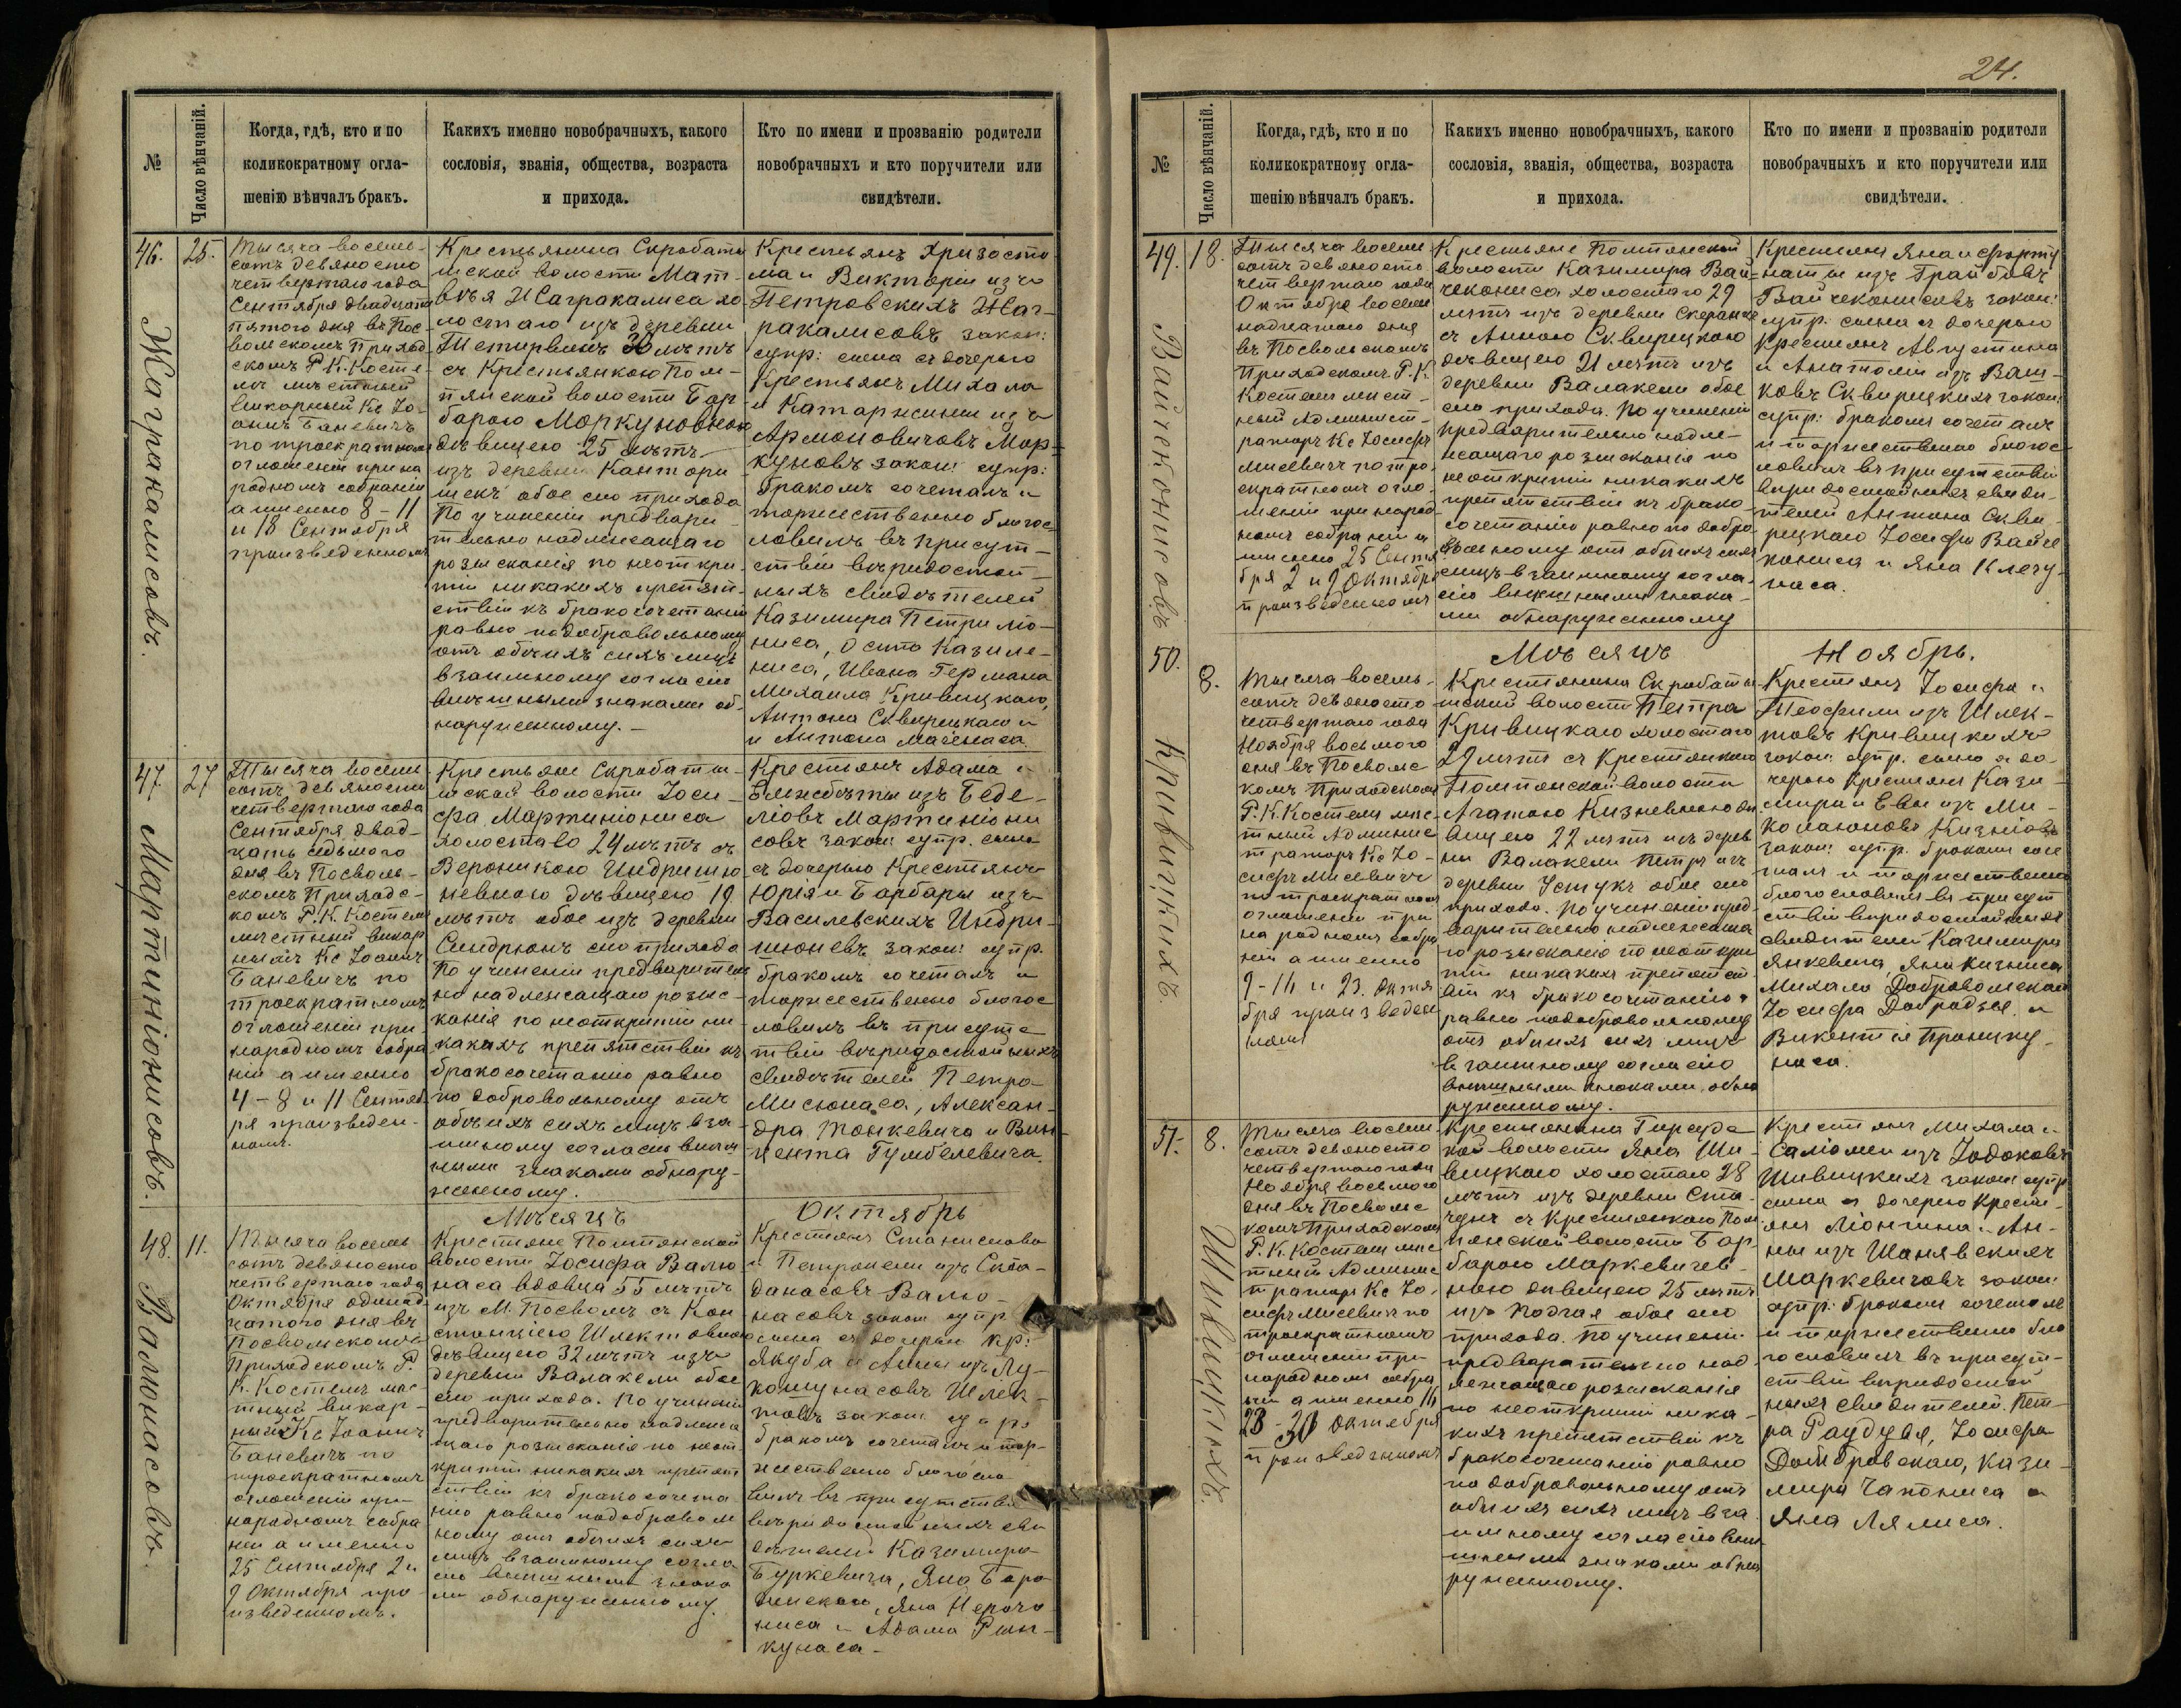 24.
№
Число вѣнчаній.
Когда, гдѣ, кто и по
коликократному огла-
шенію вѣнчалъ бракъ.
Какихъ именно новобрачныхъ, какого
сословія, званія, общества, возраста
и прихода.
Кто по имени и прозванію родители
новобрачныхъ и кто поручители или
свидѣтели.
46.
Жагракалисовъ.
25.
Тысяча восемь-
сотъ девяносто
четвертаго года
Сентября двадцать
пятого дня въ Пос-
вольскомъ Приход
скомъ Р. К. Косте-
лѣ мѣстный
викарный Кс Іо-
аннъ Баневичъ
по троекратномъ
оглашеніи при на
родномъ собраніи
а именно 8 - 11
и 18 Сентября
произведенномъ
Крестьянина Скробаты
шской волости Мат-
вѣя Жагракалиса хо-
лостаго изъ деревни
Тетервинъ 30 лѣтъ
съ Крестьянкою Пом-
пянской волости Бар-
барою Моркуновною
дѣвицею 25 лѣтъ
изъ деревни Кантори
шекъ обое сего прихода
По учиненіи предвари-
тельно надлежащаго
розысканія по неоткры-
тіи никакихъ препят-
ствій къ бракосочетанію
равно по добровольному
отъ обоихъ сихъ лицъ
взаимному согласію
внѣшными знаками об-
наруженному. -
Крестьянъ Хризосто
ма и Викторіи изъ
Петровскихъ Жаг-
ракалисовъ закон:
супр: сына съ дочерью
Крестьянъ Михала
и Катаржины изъ
Армоновичовъ Мор-
куновъ закон: супр:
бракомъ сочеталъ и
торжественно благос
ловилъ въ присут-
ствіи вѣридостой-
ныхъ свидѣтелей
Казимира Петрилю-
ниса, Осипа Казиле-
ниса, Ивана Германа
Михаила Кривицкаго,
Антона Сквирецкаго и
и Антона Маченаса.
47.
Мартиніонисовъ.
27
Тысяча восемь
сотъ девяносто
четвертаго года
Сентября двад-
цать седьмого
дня въ Посволь-
скомъ Приходс-
комъ Р. К. Костелѣ
мѣстный викар
ный Кс Іоаннъ
Баневичъ по
троекратномъ
оглашеніи при
народномъ собра
ніи а именно
4 - 8 и 11 Сентяб-
ря произведен-
номъ.
Крестьяне Скробаты-
шской волости Іоси-
фа Мартиніониса
холостаго 24 лѣтъ съ
Вероникою Индрию
невною дѣвицею 19
лѣтъ обое изъ деревни
Синдріонъ сего прихода
По учиненіи предваритель
но надлежащаго розыс-
канія по неоткрытіи ни-
какихъ препятствій къ
бракосочетанію равно
по добровольному отъ
обоихъ сихъ лицъ вза-
имному согласію внѣш
ными знаками обнару-
женному.
Крестьянъ Адама и
Эльжбеты изъ Беде-
ліовъ Мартиніони
совъ закон: супр. сына
съ дочерью Крестьянъ
Юрія и Барбары изъ
Василевскихъ Индри-
юновъ закон: супр.
бракомъ сочеталъ и
торжественно благос
ловилъ въ присутс
твіи вѣридостойныхъ
свидѣтелей Петра
Мисюнаса, Алексан-
дра Тонкевича и Вин-
цента Гумбелевича.
Мѣсяцъ
Октябрь
48.
Валюнасовъ.
11.
Тысяча восемь
сотъ девяносто
четвертаго года
Октября одинад-
цатого дня въ
Посвольскомъ
Приходскомъ Р.
К. Костелѣ мѣс-
тный викар-
ный Кс Іоаннъ
Баневичъ по
троекратномъ
оглашеніи при
народномъ собра
ніи а именно
25 Сентября 2 и
9 Октября про-
изведенномъ.
Крестьяне Помпянской
волости Іосифа Валю
наса вдовца 55 лѣтъ
изъ М. Посволь съ Кон
станціею Шлектовною
дѣвицею 32 лѣтъ изъ
деревни Валакели обое
сего прихода. По учиненіи
предварительно надлежа
щаго розысканія по неот-
крытіи никакихъ препят
ствій къ бракосочета
нію равно по доброволь
ному отъ обоихъ сихъ
лицъ взаимному согла
сію внѣшными знака
ми обнаруженному.
Крестьянъ Станислава
и Петронели изъ Скба-
данасовъ Валю-
насовъ закон супр
сына съ дочерью кр:
Якуба и Анны изъ Лу-
кошунасовъ Шлек-
товъ закон. супр.
бракомъ сочеталъ и тор-
жественно благосло
вилъ въ присутствіи
вѣридостойныхъ сви
дѣтелей Казимира
Буркевича, Яна Бара
шиского, Яна Нерочо
ниса и Адама Рын-
кунаса -
№
Число вѣнчаній.
Когда, гдѣ, кто и по
коликократному огла-
шенію вѣнчалъ бракъ.
Какихъ именно новобрачныхъ, какого
сословія, званія, общества, возраста
и прихода.
Кто по имени и прозванію родители
новобрачныхъ и кто поручители или
свидѣтели.
49.
Вайчеконисовъ
18.
Тысяча восемь
сотъ девяносто
четвертаго года
Октября восем
надцатаго дня
въ Посвольскомъ
Приходскомъ Р. К.
Костелѣ мѣст-
ный Админист-
раторъ Кс Іосифъ
Мисевичъ по тро-
екратномъ огла-
шеніи при народ-
номъ собраніи а
именно 25 Сентя
бря 2 и 9 Октября
произведенномъ
Крестьяне Помпянской
волости Казимира Вай-
чекониса холостаго 29
лѣтъ изъ деревни Скерани
съ Анною Сквирецкою
дѣвицею 21 лѣтъ изъ
деревни Валакели обое
сего прихода. По учиненіи
предварительно надле-
жащаго розысканія по
неоткрытіи никакихъ
препятствій къ брако-
сочетанію равно по добро
вольному отъ обоихъ сихъ
лицъ взаимному согла-
сію внѣшными знака-
ми обнаруженному
Крестьянъ Яна и Форту
наты изъ Грайбовъ
Вайчеконисовъ закон:
супр: сына съ дочерью
Крестьянъ Августина
и Анатоли изъ Ваш-
ковъ Сквирецкихъ закон:
супр: бракомъ сочеталъ
и торжественно благос-
ловилъ въ присутствіи
вѣридостойныхъ свидѣ-
телей Антона Скви-
рецкаго Іосифа Вайче
кониса и Яна Клечу-
наса.
Мѣсяцъ
Ноябрь.
50.
Кривицкихъ.
8.
Тысяча восемь-
сотъ девяносто
четвертаго года
Ноября восьмого
дня въ Посвольс
комъ Приходскомъ
Р. К. Костелѣ мѣс-
тный Админис
траторъ Кс Іо-
сифъ Мисевичъ
по троекратномъ
оглашеніи при
народномъ собра
ніи а именно
9 - 16 и 23. Октя
бря произведен
номъ
Крестьянина Скробаты-
шской волости Петра
Кривицкаго холостаго
29 лѣтъ съ Крестьянкою
Помпянской волости
Агатою Кизневною дѣ
вицею 22 лѣтъ изъ дерев
ни Валакели Петръ изъ
деревни Устукъ обое сего
прихода. По учиненіи пред
варительно надлежаща
го розысканія по неоткры
тіи никакихъ препятст
вій къ бракосочетанію
равно по добровольному
отъ обоихъ сихъ лицъ
взаимному согласію
внѣшными знаками обна
руженному.
Крестьянъ Іосифа и
Теофили изъ Шлек-
товъ Кривицкихъ
закон: супр. сына съ до-
черью Крестьянъ Кази-
мира и Евы изъ Ми-
колаюновъ Кизніовъ
закон: супр. бракомъ соче
талъ и торжественно
благословилъ въ присут
ствіи вѣридостойныхъ
свидѣтелей Казимира
Янкевича, Яна Кизниса
Михала Добровольскаго
Іосифа Добродзея и
Викентія Пронцку-
наса.
51.
Шивицкихъ.
8.
Тысяча восемь
сотъ девяносто
четвертаго года
Ноября восьмого
дня въ Посвольс
комъ Приходскомъ
Р. К. Костелѣ мѣс
тный Админис
траторъ Кс Іо-
сифъ Мисевичъ по
троекратномъ
оглашеніи при
народномъ собра
ніи а именно 16
23 - 30 Октября
произведенномъ
Крестьянина Гирсудс
кой волости Яна Ши-
вицкаго холостаго 28
лѣтъ изъ деревни Ста-
чунъ съ Крестьянкою Пом
пянской волости Бар-
барою Маркевичев-
ною дѣвицею 25 лѣтъ
изъ Подгая обое сего
прихода. По учиненіи
предварительно над
лежащаго розысканія
по неоткрытіи ника-
кихъ препятствій къ
бракосочетанію равно
по добровольному отъ
обоихъ сихъ лицъ вза
имному согласію внѣ
шными знаками обна
руженному.
Крестьянъ Михала и
Саломеи изъ Іодоковъ
Шивицкихъ закон супр
сына съ дочерью Кресть-
янъ Ліонгина и Ан-
ны изъ Шанявскихъ
Маркевичовъ закон:
супр. бракомъ сочеталъ
и торжественно бла
гословилъ въ присут-
ствіи вѣридостой
ныхъ свидѣтелей. Пет-
ра Раудувя, Іосифа
Домбровскаго, Кази-
мира Чапониса и
Яна Лялиса.